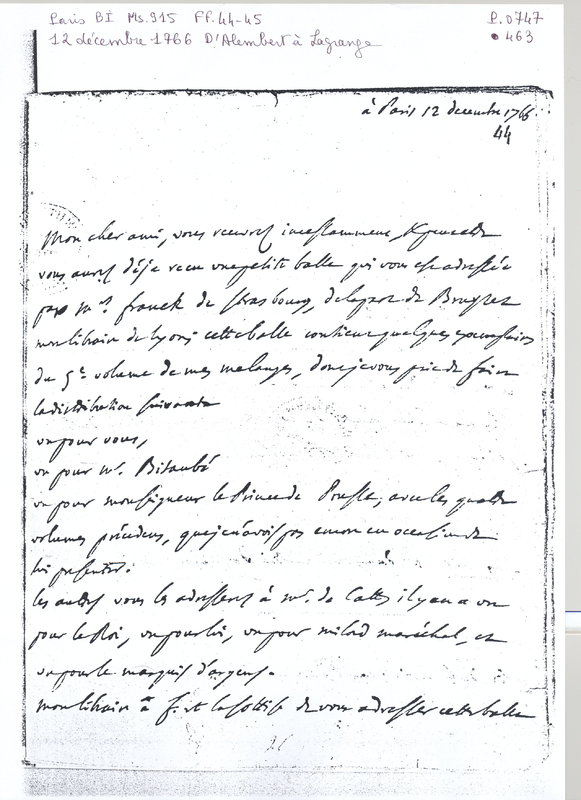 Paris BI Ms. 915 FF. 44-45
P. 0747
12 décembre 1766 D'Alembert à Lagrange
• 463
à Paris 12 decembre 1766
44
Mon cher ami, vous recevrez incessamment, & peutetre
vous aurez déja recu une petite balle qui vous est adressée
par mr. franck de strasbourg, de la part de Bruyset
mon libraire de Lyon; cette balle contient quelques exemplaires
du 5e. volume de mes melanges, dont je vous prie de faire
la distribution suivante
un pour vous,
un pour mr. Bitaubé
un pour monseigneur le Prince de Prusse, avec les quatre
volumes précédens, que je n'avois pas encore eu occasion de
lui presenter.
les autres vous les adresserez à mr. de Catt; il y en a un
pour le Roi, un pour lui, un pour milord maréchal, et
un pour le marquis d'argens.
mon libraire a fait la sottise de vous adresser cette balle